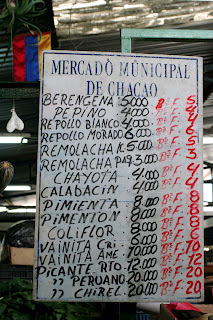 MERCADO MUNICIPAL
DE CHACAO
BERENGENA 5.000 Bs F. 5
PEPINO 4.000 Bs F. 4
REPOLLO BLANCO 4.000 Bs F. 4
REPOLLO MORADO 6.000 Bs F. 6
REMOLACHA 5.000 Bs F. 5
REMOLACHA 3.000 Bs F. 3
CHAYOTA 4.000 Bs F. 4
CALABACIN 4.000 Bs F. 4
PIMIENTA 8.000 Bs F. 8
PIMENTON 8.000 Bs F. 8
COLIFLOR 8.000 Bs F. 8
VAINITA CRI. 10.000 Bs F. 10
VAINITA AME. 12.000 Bs F. 12
PICANTE RTO. 20.000 Bs F. 20
" PERUANO 20.000 Bs F. 20
" CHIREL 20.000 Bs F. 20